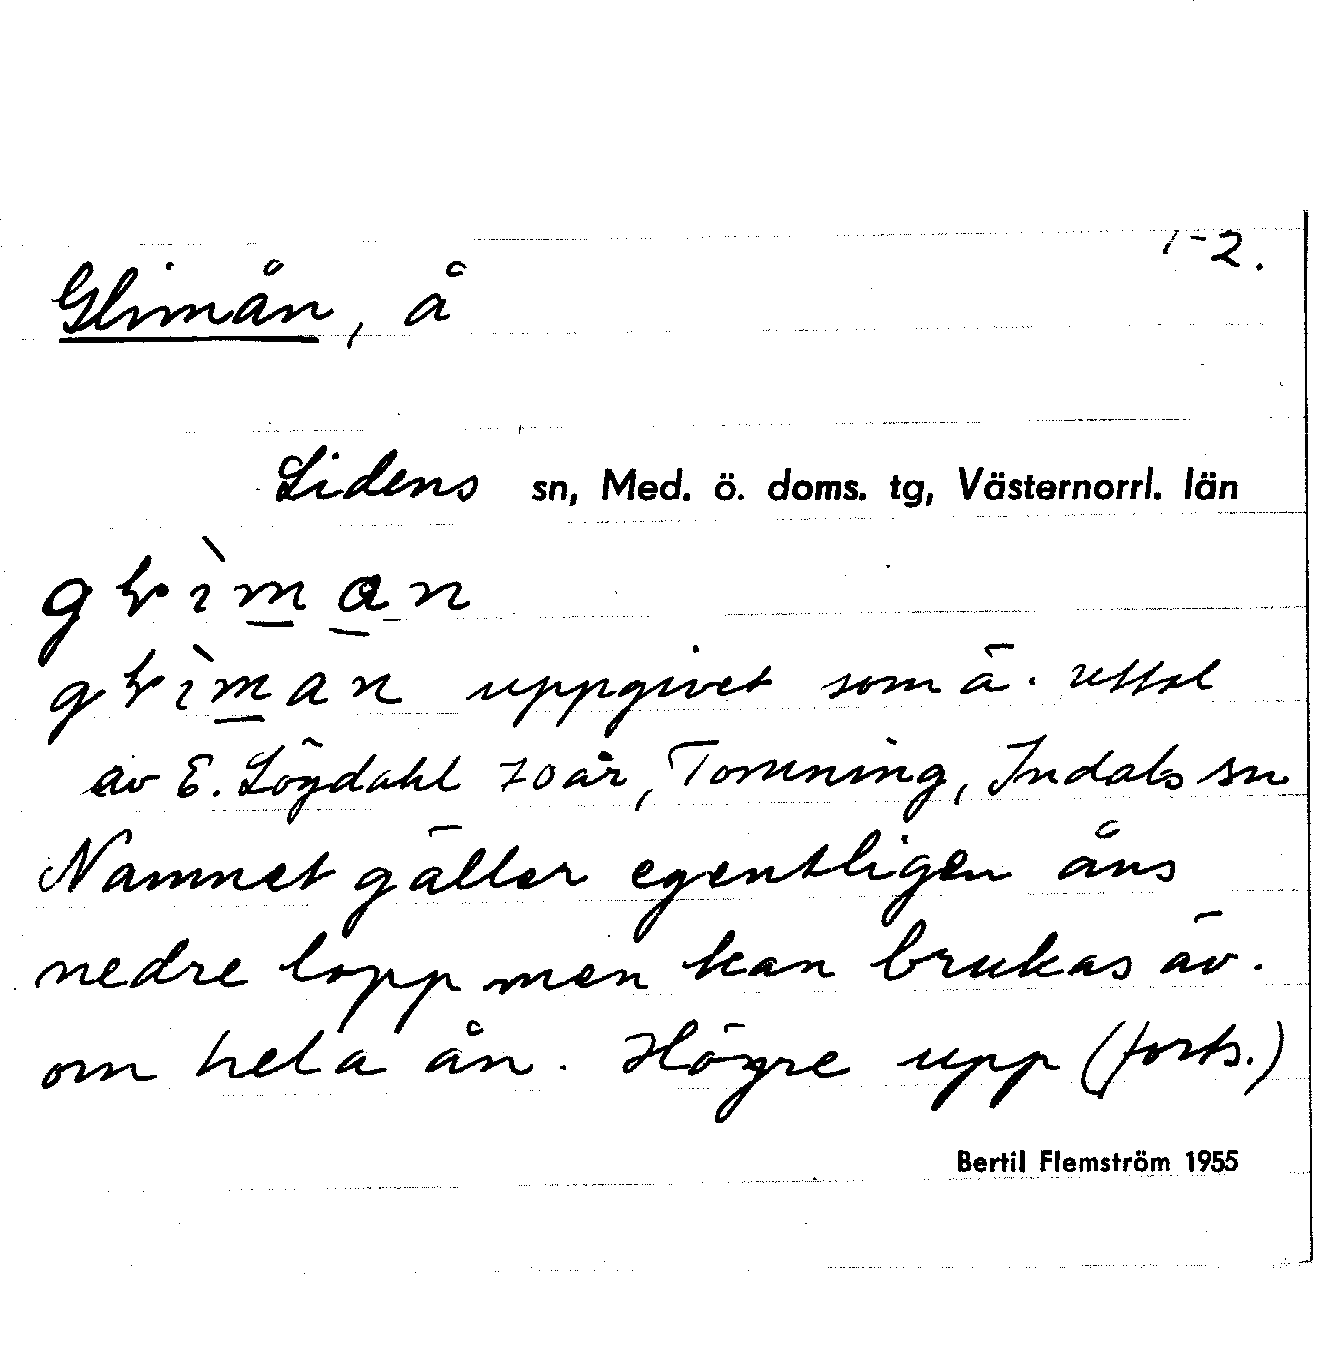 1-2.
Glimån, å
Lidens sn, Med. ö. doms. tg, Västernorrl. län
uppgivet som ä. uttal
av E. Lögdahl 70 år, Tomming, Indals sn
Namnet gäller egentligen åns
nedre lopp men kan brukas äv.
om hela ån. Högre upp (forts.)
Bertil Flemström 1955